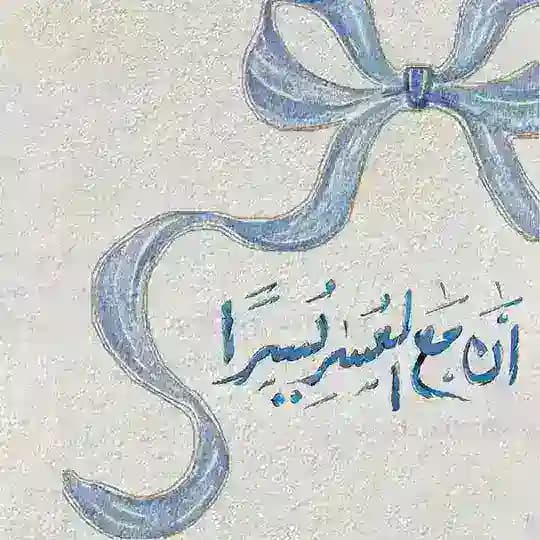 اَنَّ مَعَ العُسرِ يُسيرًا